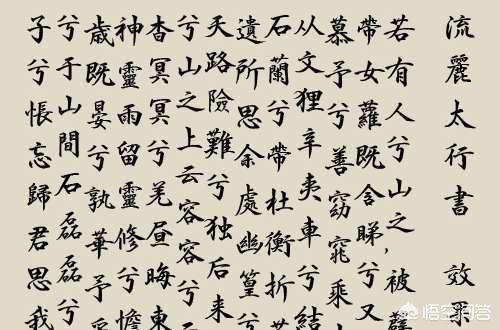 流麗太行書 效果
若有人兮山之,被薜
帶女蘿既含睇兮又
慕予兮善窈窕乘
从文狸辛夷車兮結
石蘭兮帶杜衡折
遺所思余處幽篁
天路險難兮独后来
兮山之上云容容兮
杳冥冥兮羌昼晦東
神靈雨留靈修兮憺
歲既晏兮孰華予采
兮于山間石磊磊兮
子兮悵忘歸君思我
悟空问答